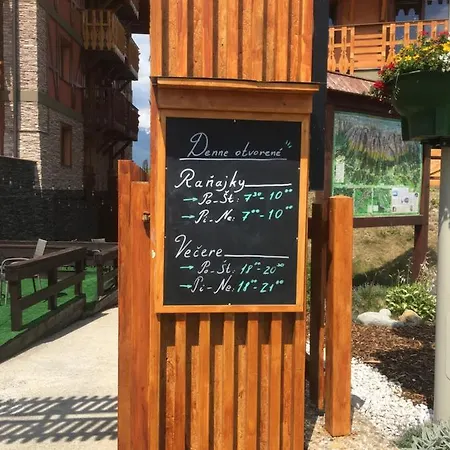 Denne otvorené
Raňajky
→ Po-Št: 7³⁰-10⁰⁰
→ Pi-Ne: 7⁰⁰-10⁰⁰
Večere
→ Po-Št: 18⁰⁰-20³⁰
→ Pi-Ne: 18⁰⁰-21⁰⁰